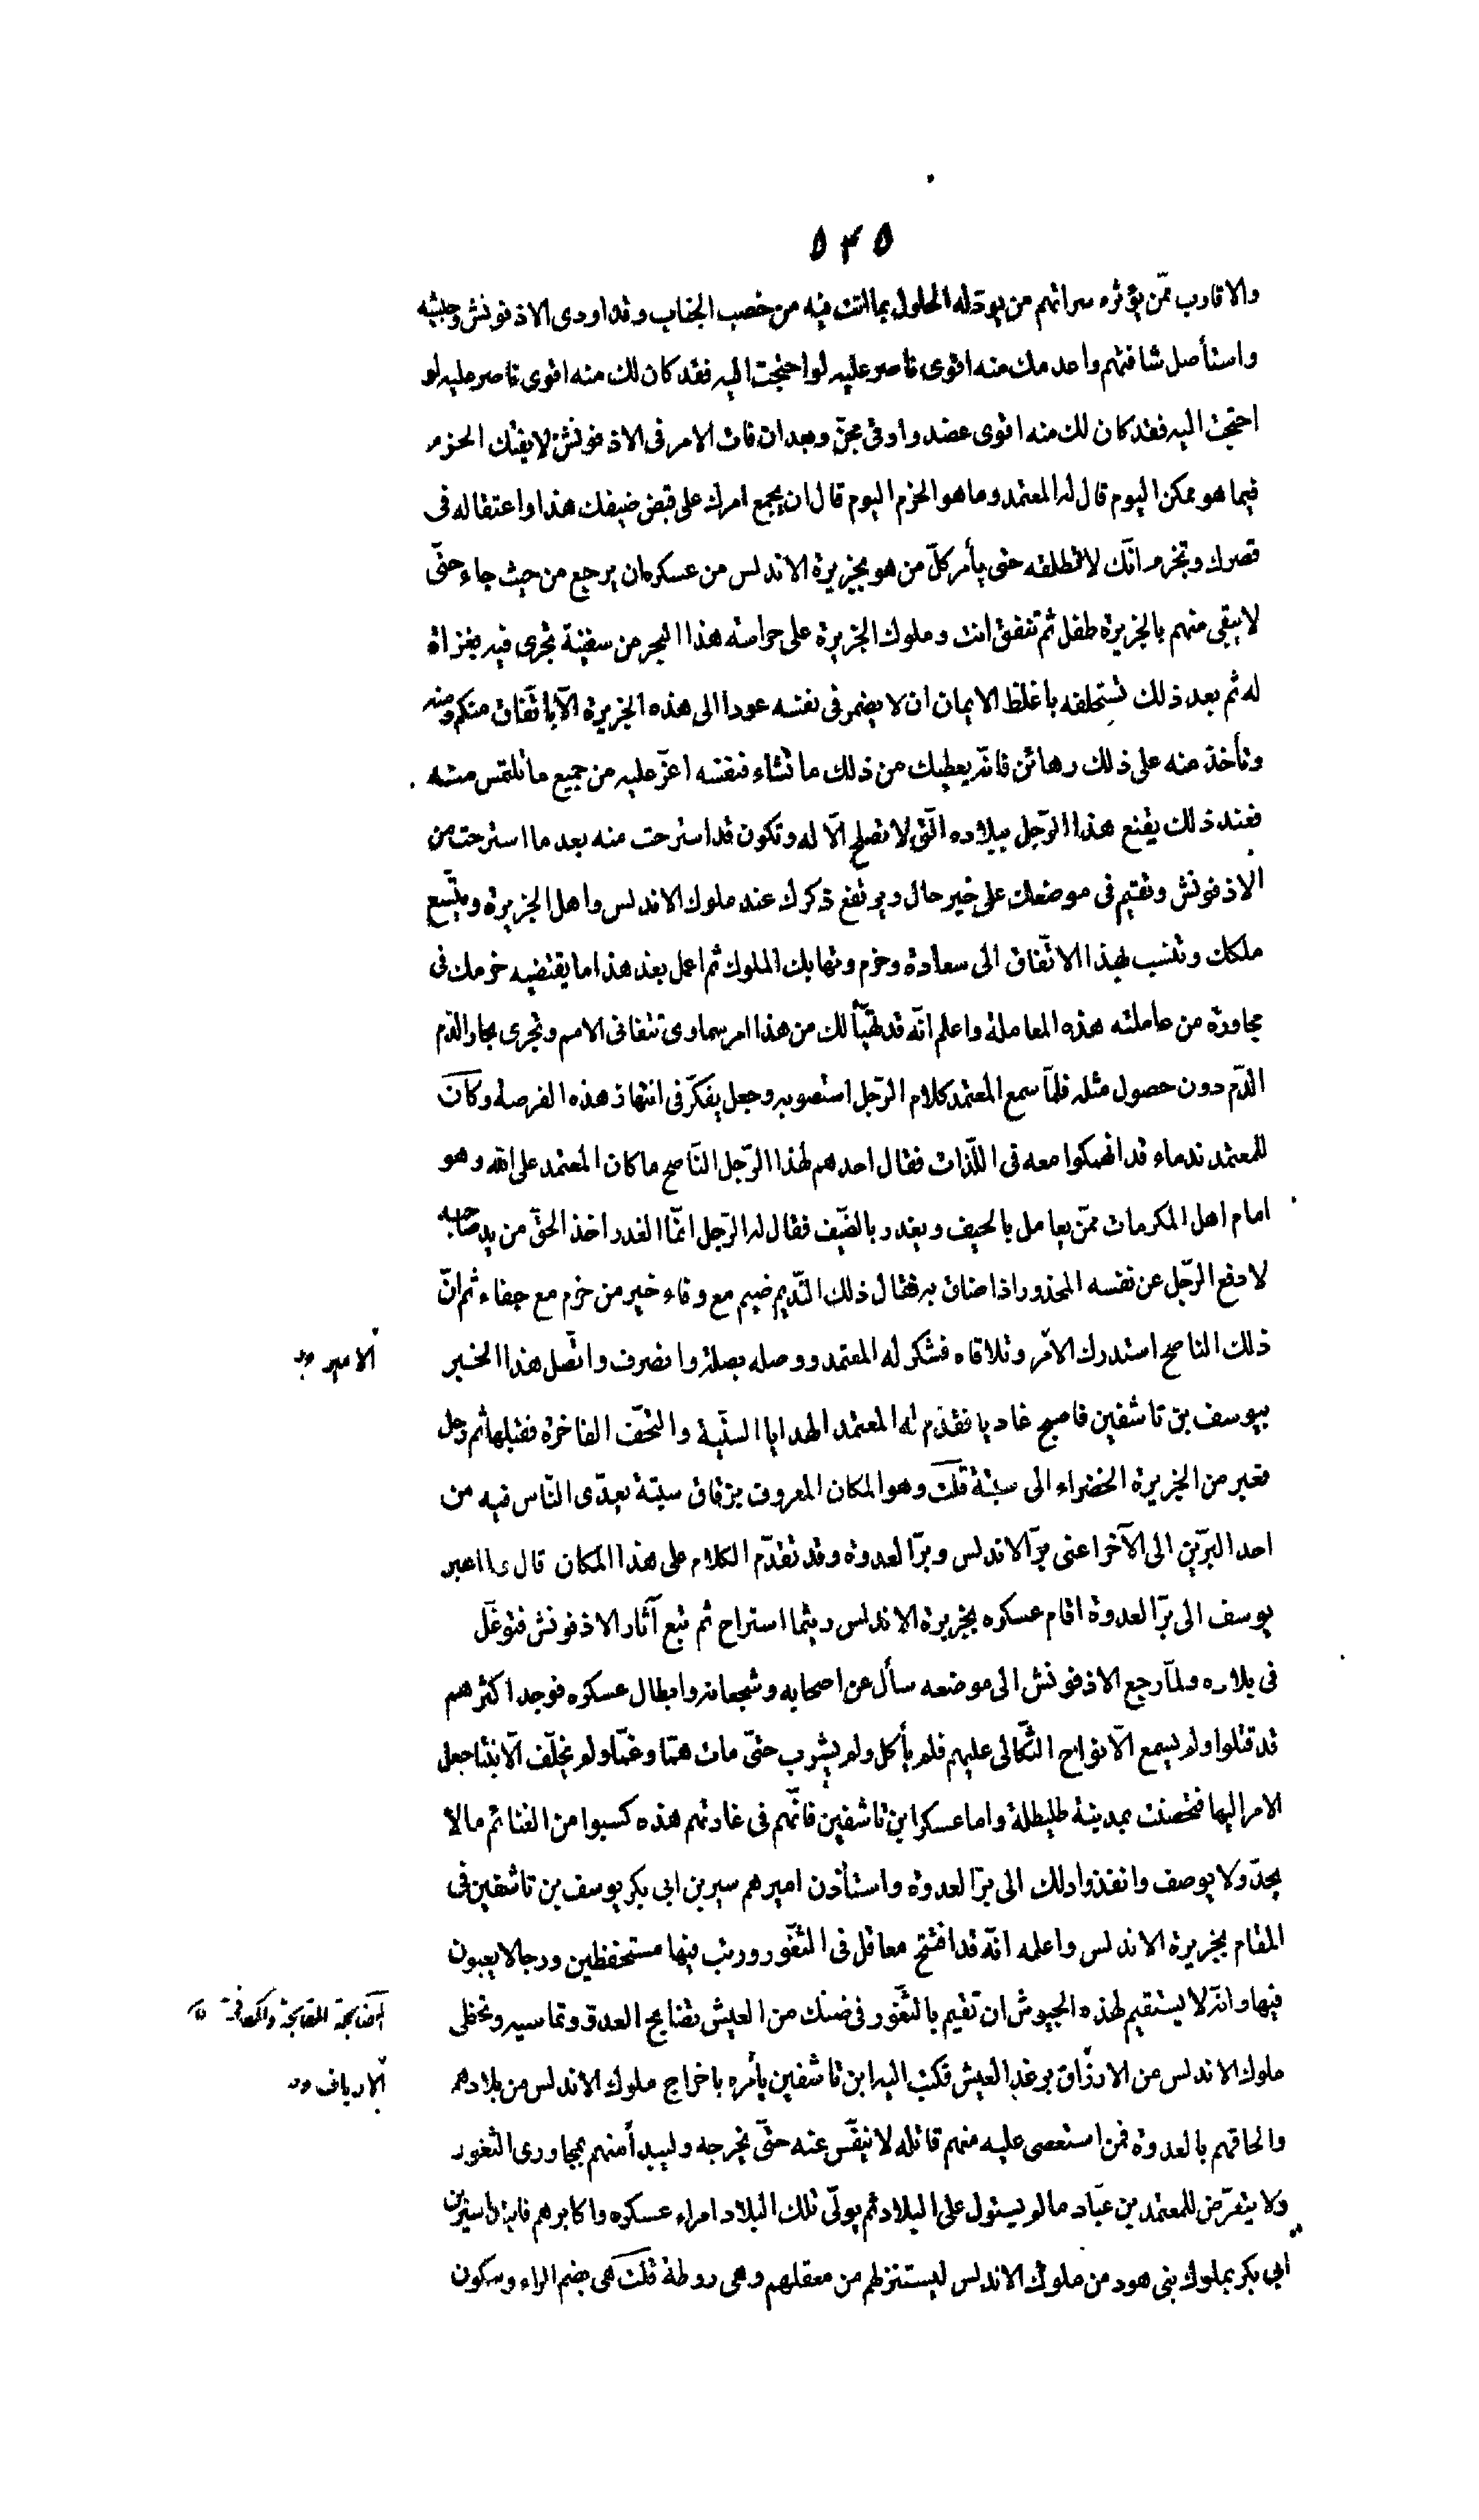 ٥٣٥
والاقارب ممّن يؤثره سراتهم من يودّ له الحلول بما انت فيه من خصب الجناب وقد اودى الاذفونش وجيشه
واستأصل شافتهم واعدمك منه اقوى ناصر عليه لو احتجت اليه فقد كان لك منه اقوى ناصر عليه لو
احتجت اليه فقد كان لك منه اقوى عضد واوقى مجنّ وبعد ان فات الامر فى الاذفونش لا يفتك الحزم
فيما هو ممكن اليوم قال له المعتمد وما هو الحزم اليوم قال ان يجمع امرك على قبض ضيفك هذا واعتقاله فى
قصرك وتجزم انّك لا تطلقه حتى يأمر كلّ من هو بجزيرة الاندلس من عسكره ان يرجع من حيث جاء حتّى
لا يبقى منهم بالجزيرة طفل ثم تتفق انت وملوك الجزيرة على حراسة هذا البحر من سفينة تجرى فيه بغزاة
له ثم بعد ذلك تستحلفه باغلظ الايمان ان لا يضمر فى نفسه عودا الى هذه الجزيرة الّا باتّفاق منكم ومنه
وتأخذ منه على ذلك رهائن فانّه يعطيك من ذلك ما تشاء فنفسه اعزّ عليه من جميع ما تلتمس منه
فعند ذلك يقنع هذا الرّجل ببلاده الّتى لا تصلح الّا له وتكون قد استرحت منه بعد ما استرحت من
الاذفونش وتقيم فى موضعك على خير حال ويرتفع ذكرك عند ملوك الاندلس واهل الجزيرة ويتّسع
ملكك وتنسب بهذا الاتّفاق الى سعادة وحزم وتهابك الملوك ثم اعمل بعد هذا ما يقتضيه حزمك فى
مجاورة من عاملته هذه المعاملة واعلم انّه قد تهيّأ لك من هذا امر سماوى تتفانى الامم وتجرى بحار الدّم
الدّم دون حصول مثله فلمّا سمع المعتمد كلام الرّجل استصوبه وجعل يفكّر فى انتهاز هذه الفرصة وكان
للمعتمد ندماء قد انهمكوا معه فى اللّذات فقال احدهم لهذا الرّجل النّاصح ما كان المعتمد على الله وهو
امام اهل المكرمات ممّن يعامل بالحيف ويغدر بالضّيف فقال له الرّجل انّما الغدر اخذ الحقّ من يد صاحبه
لا دفع الرّجل عن نفسه المحذور اذا ضاق به فقال ذلك النّديم ضيم مع وفاء خير من حزم مع جفاء ثم انّ
ذلك الناصح استدرك الامر وتلافاه فشكر له المعتمد ووصله بصلة وانصرف واتّصل هذا الخبر
الامير
بيوسف بن تاشفين فاصبح غاديا فقدّم له المعتمد الهدايا السنّية والتّحف الفاخرة فقبلها ثم رحل
فعبر من الجزيرة الخضراء الى سبتة قلت وهو المكان المعروف بزقاق سبتة يعدّى النّاس فيه من
احد البرّين الى الآخر اعنى برّ الاندلس وبرّ العدوة وقد تقدّم الكلام على هذا المكان قال ولما عبر
يوسف الى برّ العدوة اقام عسكره بجزيرة الاندلس ريثما استراح ثم تبع آثار الاذفونش فتوغّل
فى بلاده ولمّا رجع الاذفونش الى موضعه سأل عن اصحابه وشجعانه وابطال عسكره فوجد اكثرهم
قد قتلوا ولم يسمع الّا نواح الثّكالى عليهم فلم يأكل ولم يشرب حتّى مات همّا وغمّا ولم يخلّف الّا بنتا جعل
الامر اليها فتحصنت بمدينة طليطلة واما عسكر ابن تاشفين فانّهم فى غارتهم هذه كسبوا من الغنائم ما لا
يحدّ ولا يوصف وانفذوا ذلك الى برّ العدوة واستأذن اميرهم سير بن ابى بكر يوسف بن تاشفين فى
المقام بجزيرة الاندلس واعلمه انّه قد افتتح معاقل فى الثّغور ورتب فيها مستحفظين ورجالا يعبون
فيها وانّه لا يستقيم لهذه الجيوش ان تقيم بالثّغور فى ضنك من العيش تصابح العدوّ وتماسيه وتحظى
ملوك الاندلس من الارزاق برغد العيش فكتب اليه ابن تاشفين يأمره باخراج ملوك الاندلس من بلادهم
الارياف
والحاقهم بالعدوة فمن استعصى عليه منهم قاتله لا ينفّس عنه حتّى يخرجه وليبدأ منهم بمجاورى الثغور
ولا يتعرّض للمعتمد بن عبّاد ما لم يستول على البلاد ثم يولّى تلك البلاد امراء عسكره واكابرهم فابتدا سير بن
ابى بكر بملوك بنى هود من ملوك الاندلس ليستنزلهم من معقلهم وهى روطة قلت هى بضم الراء وسكون